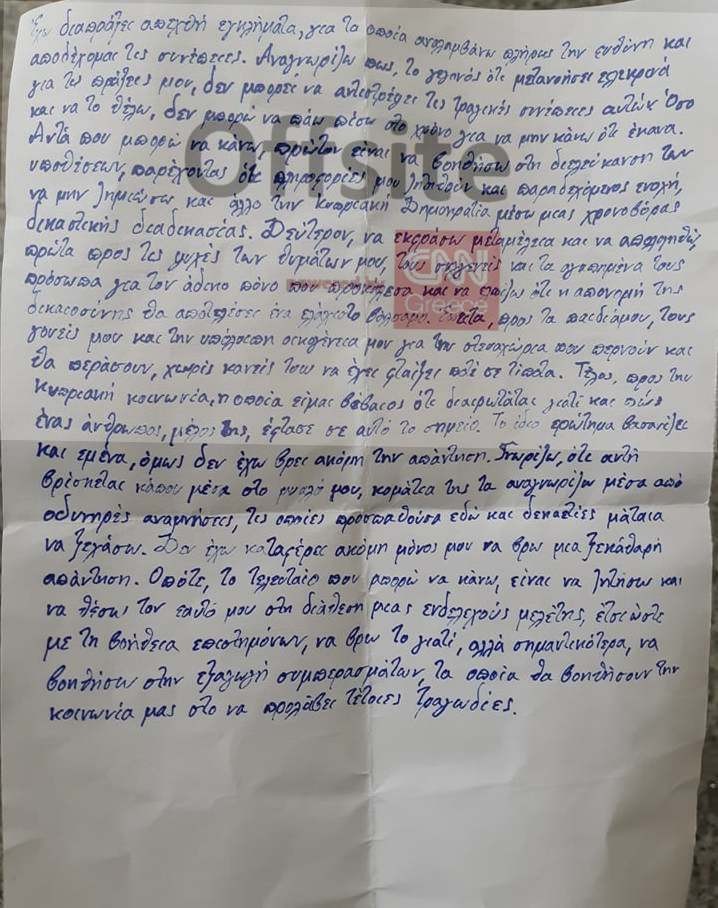 Έχω διαπράξει απεχθή εγκλήματα, για τα οποία αναλαμβάνω πλήρως την ευθύνη και
αποδέχομαι τις συνέπειες. Αναγνωρίζω πως, το γεγονός ότι μετανόησα ειλικρινά
για τις πράξεις μου, δεν μπορεί να αντιστρέψει τις τραγικές συνέπειες αυτών. Όσο
και να το θέλω, δεν μπορώ να πάω πίσω στο χρόνο για να μην κάνω ότι έκανα.
Αυτά που μπορώ να κάνω, πρώτον είναι να βοηθήσω στη διελεύκανση των
υποθέσεων, παρέχοντας ότι πληροφορίες μου ζητηθούν και παραδεχόμενος ενοχή,
να μην ζημιώσω και άλλο την Κυπριακή Δημοκρατία μέσω μιας χρονοβόρας
δικαστικής διαδικασίας. Δεύτερον, να εκφράσω μεταμέλεια και να απολογηθώ,
πρώτα προς τις ψυχές των θυμάτων μου, τους συγγενείς και τα αγαπημένα τους
πρόσωπα για τον άδικο πόνο που προκάλεσα και να ελπίζω ότι η απονομή της
δικαιοσύνης θα αποτελέσει ένα ελάχιστο βάλσαμο. Έπειτα, προς τα παιδιά μου, τους
γονείς μου και την υπόλοιπη οικογένεια μου για την στεναχώρια που περνούν και
θα περάσουν, χωρίς κανείς τους να έχει φταίξει ποτέ σε τίποτα. Τέλος, προς την
κυπριακή κοινωνία, η οποία είμαι βέβαιος ότι διερωτάται γιατί και πώς
ένας άνθρωπος, μέλος της, έφτασε σε αυτό το σημείο. Το ίδιο ερώτημα βασανίζει
και εμένα, όμως δεν έχω βρει ακόμη την απάντηση. Γνωρίζω, ότι αυτή
βρίσκεται κάπου μέσα στο μυαλό μου, κομμάτια της τα αναγνωρίζω μέσα από
οδυνηρές αναμνήσεις, τις οποίες προσπαθούσα εδώ και δεκαετίες μάταια
να ξεχάσω. Δεν έχω καταφέρει ακόμη μόνος μου να βρω μια ξεκάθαρη
απάντηση. Οπότε, το τελευταίο που μπορώ να κάνω, είναι να ζητήσω και
να θέσω τον εαυτό μου στη διάθεση μιας ενδελεχούς μελέτης, έτσι ώστε
με τη βοήθεια επιστημόνων, να βρω το γιατί, αλλά σημαντικότερα, να
βοηθήσω στην εξαγωγή συμπερασμάτων, τα οποία θα βοηθήσουν την
κοινωνία μας στο να προλάβει τέτοιες τραγωδίες.
Offsite
CNN
Greece